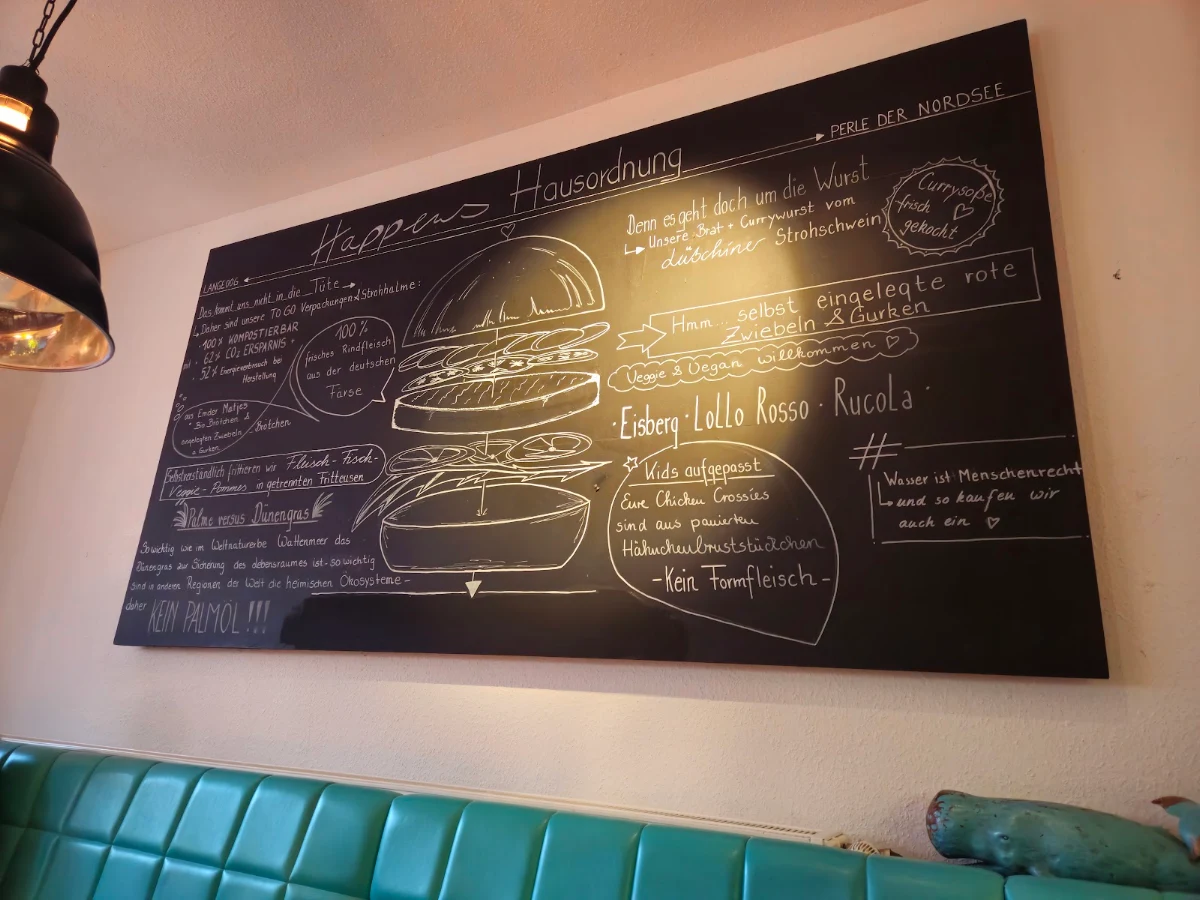 Happens Hausordnung
LANGEOOG
PERLE DER NORDSEE
Das kommt uns nicht in die Tüte
Daher sind unsere TO GO Verpackungen & Strohhalme:
100% KOMPOSTIERBAR
62% CO2 ERSPARNIS
52% Energieverbrauch bei
Herstellung
100%
frisches Rindfleisch
aus der deutschen
Färse
aus Emder Matjes
Bio Brötchen &
eingelegten Zwiebeln
& Gurken
Brötchen
Selbstverständlich frittieren wir Fleisch- Fisch-
Veggie- Pommes in getrennten Fritteusen
Palme versus Dünengras
So wichtig wie im Weltnaturerbe Wattenmeer das
Dünengras zur Sicherung des Lebensraumes ist - so wichtig
sind in anderen Regionen der Welt die heimischen Ökosysteme -
daher KEIN PALMÖL !!!
Denn es geht doch um die Wurst
Unsere Brat + Currywurst vom
düschiner Strohschwein
Currysoße
frisch
gekocht
Hmm... selbst eingelegte rote
Zwiebeln & Gurken
Veggie & Vegan willkommen
· Eisberg · Lollo Rosso · Rucola ·
Kids aufgepasst
Eure Chicken Crossies
sind aus panierten
Hähnchenbruststückchen
- Kein Formfleisch -
#
Wasser ist Menschenrecht
und so kaufen wir
auch ein